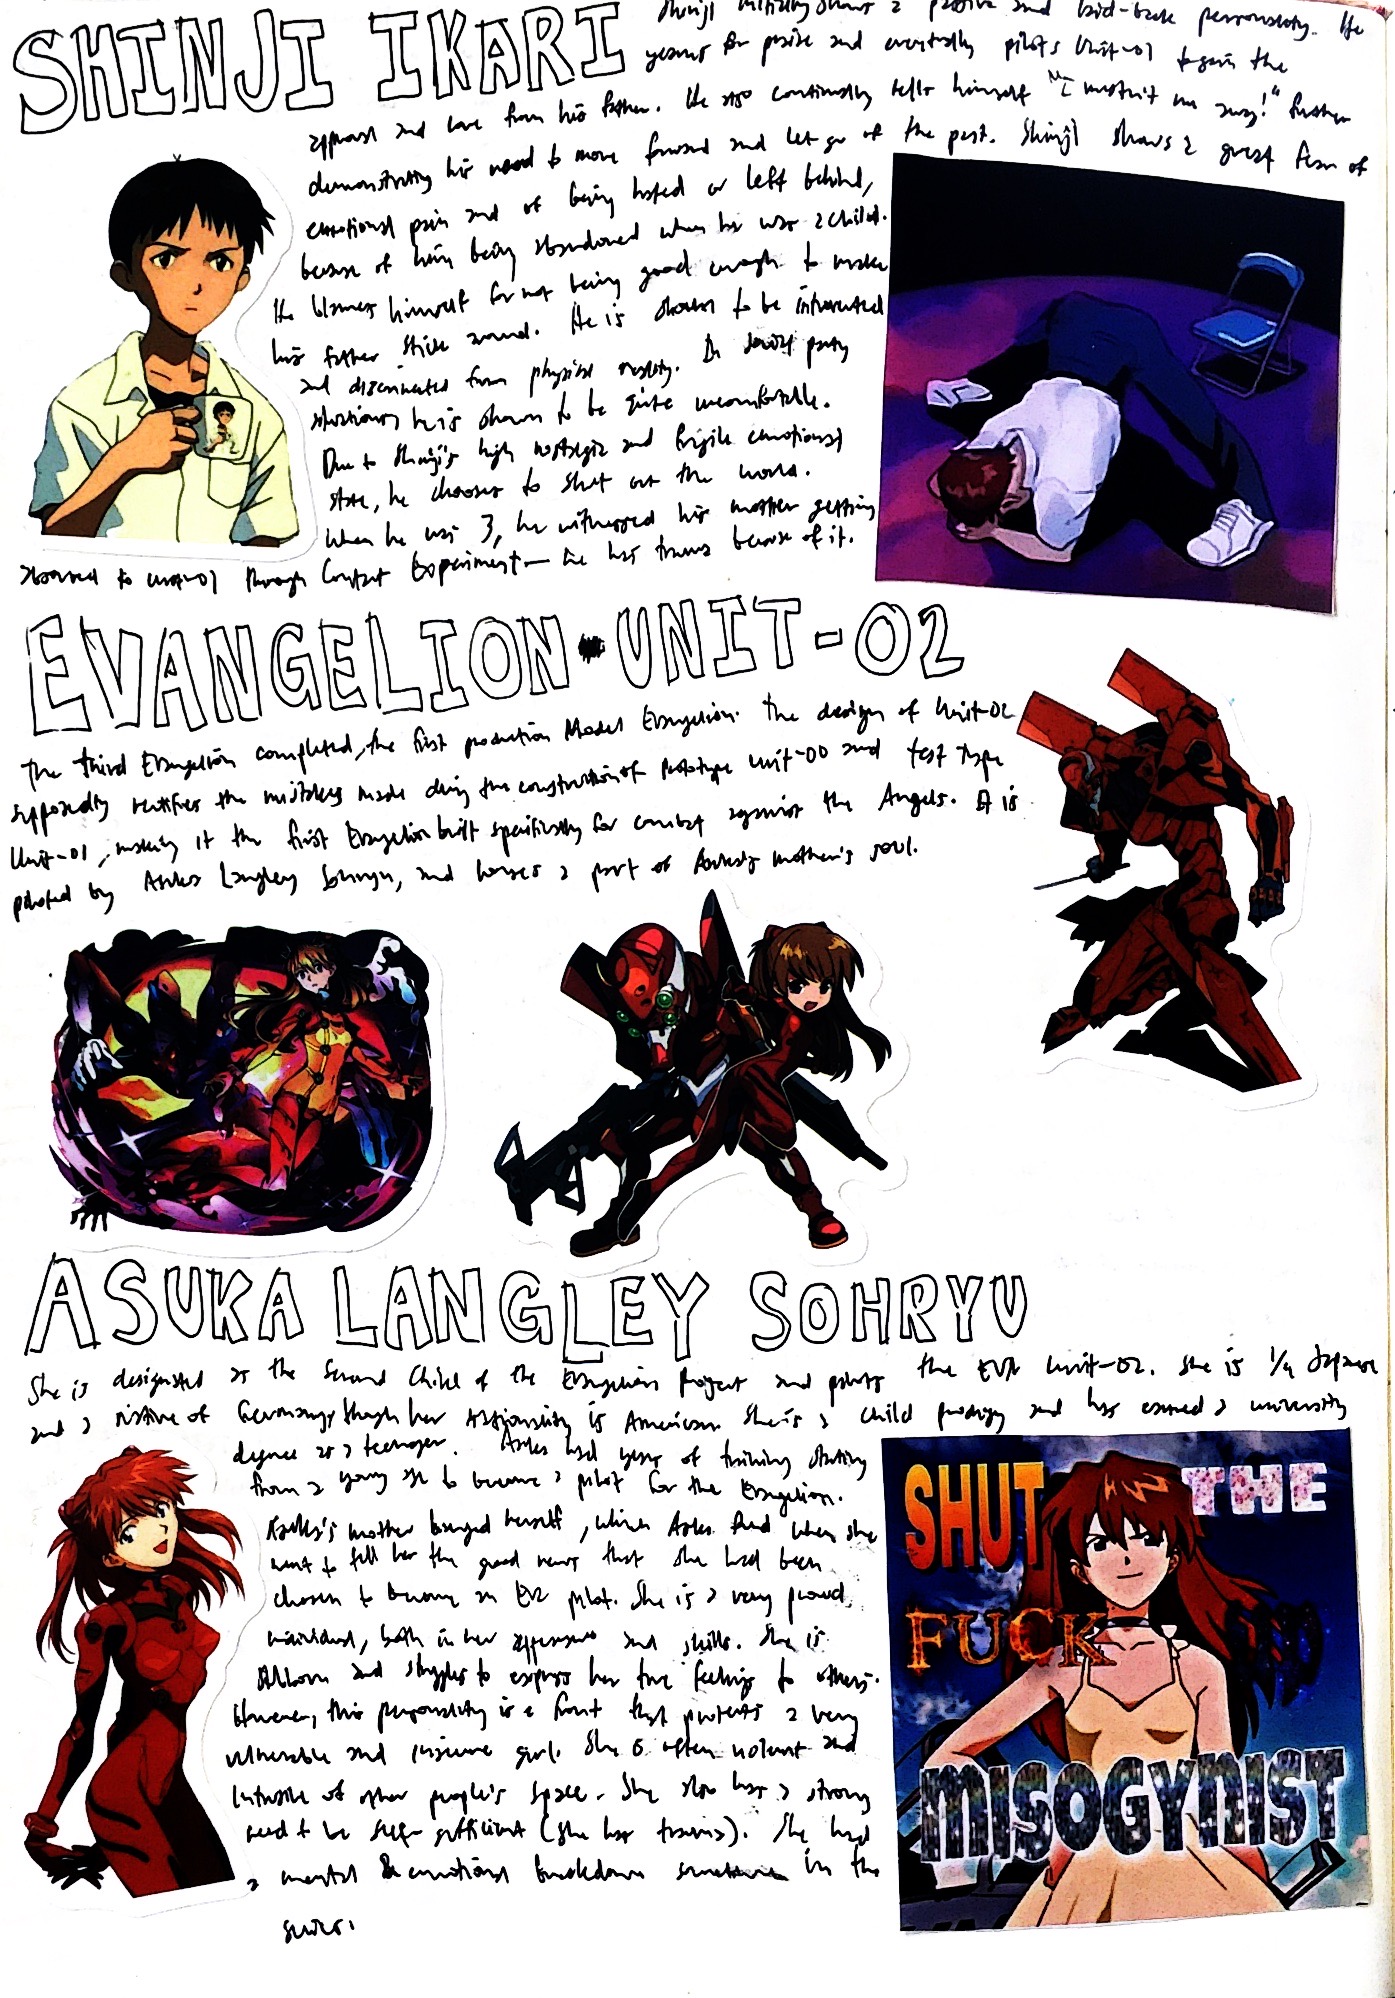 SHINJI IKARI
Shinji initially shows a passive and laid-back personality. He
yearns for praise and eventually pilots Unit-01 to gain the
approval and love from his father. He also continually tells himself "I mustn't run away!" further
demonstrating his need to move forward and let go of the past. Shinji shows a great fear of
emotional pain and of being hated or left behind,
because of him being abandoned when he was a child.
He blames himself for not being good enough to make
his father stick around. He is shown to be introverted
and disconnected from physical reality. In social party
situations he is shown to be quite uncomfortable.
Due to Shinji's high nostalgia and fragile emotional
state, he chooses to shut out the world.
When he was 3, he witnessed his mother getting
absorbed to unit-01 through Contact Experiment— he has trauma because of it.
EVANGELION UNIT-02
The third Evangelion completed, the first production Model Evangelion. The design of Unit-02
supposedly rectifies the mistakes made during the construction of Prototype unit-00 and test type
Unit-01, making it the first Evangelion built specifically for combat against the Angels. It is
piloted by Asuka Langley Sohryu, and houses a part of Asuka's mother's soul.
ASUKA LANGLEY SOHRYU
She is designated as the Second Child of the Evangelion Project and pilots the EVA Unit-02. She is 1/4 Japanese
and a native of Germany, though her nationality is American. She is a child prodigy and has earned a university
degree as a teenager. Asuka had years of training starting
from a young age to become a pilot for the Evangelion.
Asuka's mother hanged herself, which Asuka find when she
went to tell her the good news that she had been
chosen to become an EVA pilot. She is a very proud
individual, both in her appearance and skills. She is
stubborn and struggles to express her true feelings to others.
However, this personality is a front that protects a very
vulnerable and insecure girl. She is often violent and
intrusive of other people's space. She also has a strong
need to be self-sufficient (she has trauma). She had
a mental & emotional breakdown sometime in the
series.
SHUT THE
FUCK UP
MISOGYNIST